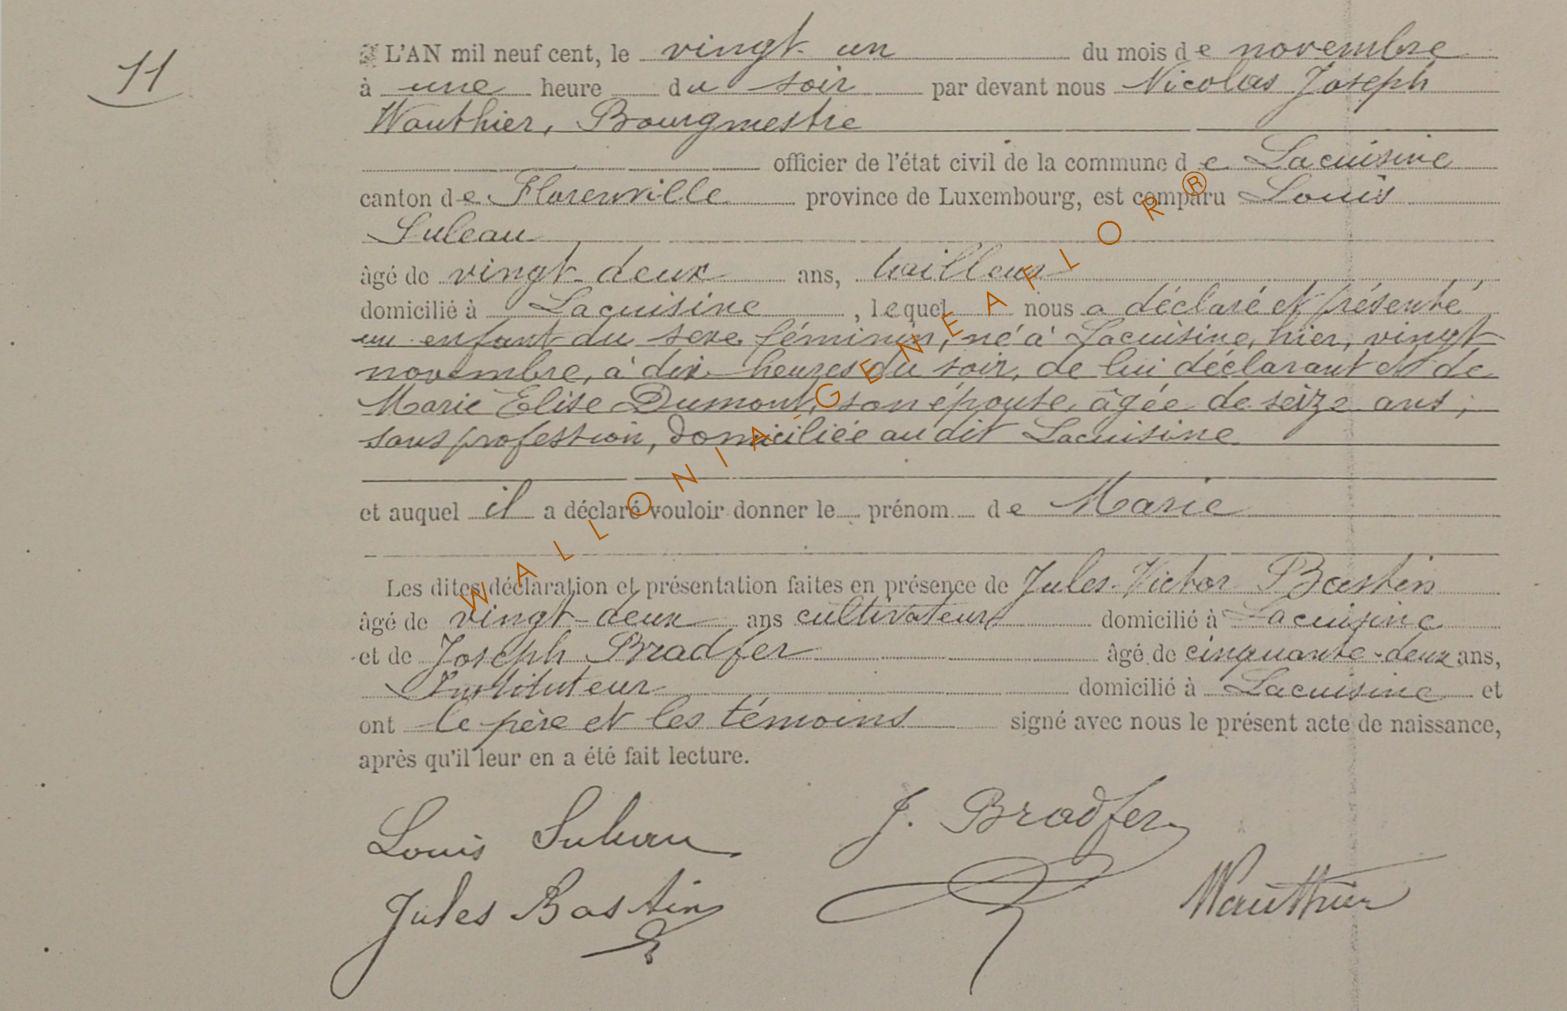 11
L'AN mil neuf cent, le vingt un du mois de novembre
à une heure du soir par devant nous Nicolas Joseph
Wauthier, Bourgmestre
officier de l'état civil de la commune de Lacuisine
canton de Florenville province de Luxembourg, est comparu Louis
Suleau
âgé de vingt deux ans, tailleur
domicilié à Lacuisine, lequel nous a déclaré et présenté
un enfant du sexe féminin, né à Lacuisine, hier, vingt
novembre, à dix heures du soir, de lui déclarant et de
Marie Elise Dumont, son épouse, âgée de seize ans,
sans profession, domiciliée au dit Lacuisine
et auquel il a déclaré vouloir donner le prénom de Marie
Les dites déclaration et présentation faites en présence de Jules Victor Bastin
âgé de vingt-deux ans cultivateur domicilié à Lacuisine
et de Joseph Bradfer âgé de cinquante-deux ans,
Instituteur domicilié à Lacuisine et
ont le père et les témoins signé avec nous le présent acte de naissance,
après qu'il leur en a été fait lecture.
Louis Suleau J. Bradfer
Jules Bastin Wauthier
WALLONIA-GENEAFLOR®